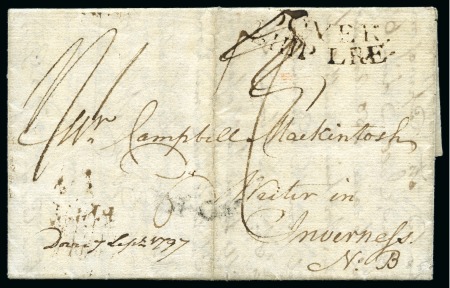 DOVER.
SHIP LRE
Mr. Campbell Mackintosh
Writer in
Inverness
N. B
7 Sept 1797